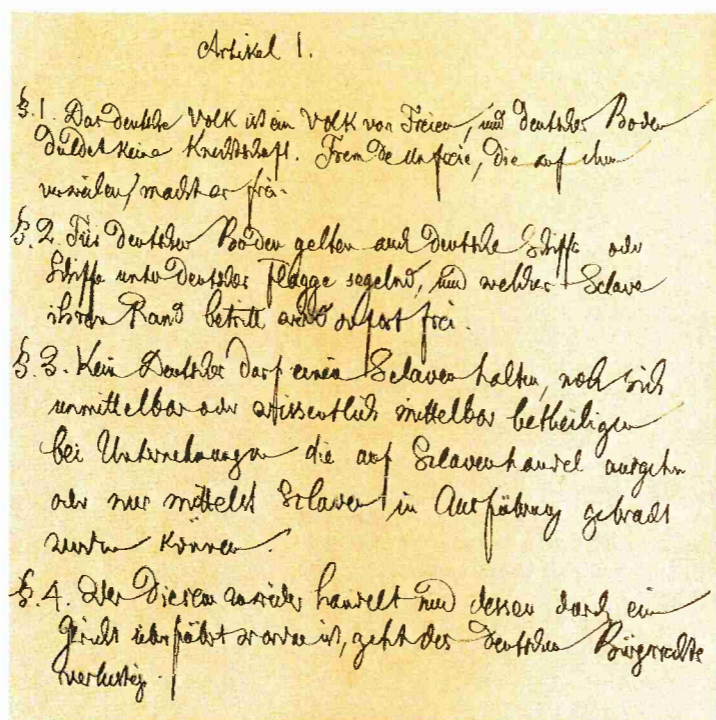 Artikel 1.
§.1. Das deutsche Volk ist ein Volk von Freien, und deutscher Boden
duldet keine Knechtschaft. Fremde Unfreie, die auf ihm
verweilen, macht er frei.
§.2. Für deutschen Boden gelten auch deutsche Schiffe oder
Schiffe unter deutscher Flagge segelnd, und welcher Sclave
ihren Rand betritt wird sofort frei.
§.3. Kein Deutscher darf einen Sclaven halten, noch sich
unmittelbar oder wissentlich mittelbar betheiligen
bei Unternehmungen die auf Sclavenhandel ausgehn
oder nur mittelst Sclaven in Ausführung gebracht
werden können.
§.4. Wer diesem zuwider handelt und dessen durch ein
Gericht überführt worden ist, geht des deutschen Bürgerrechts
verlustig.